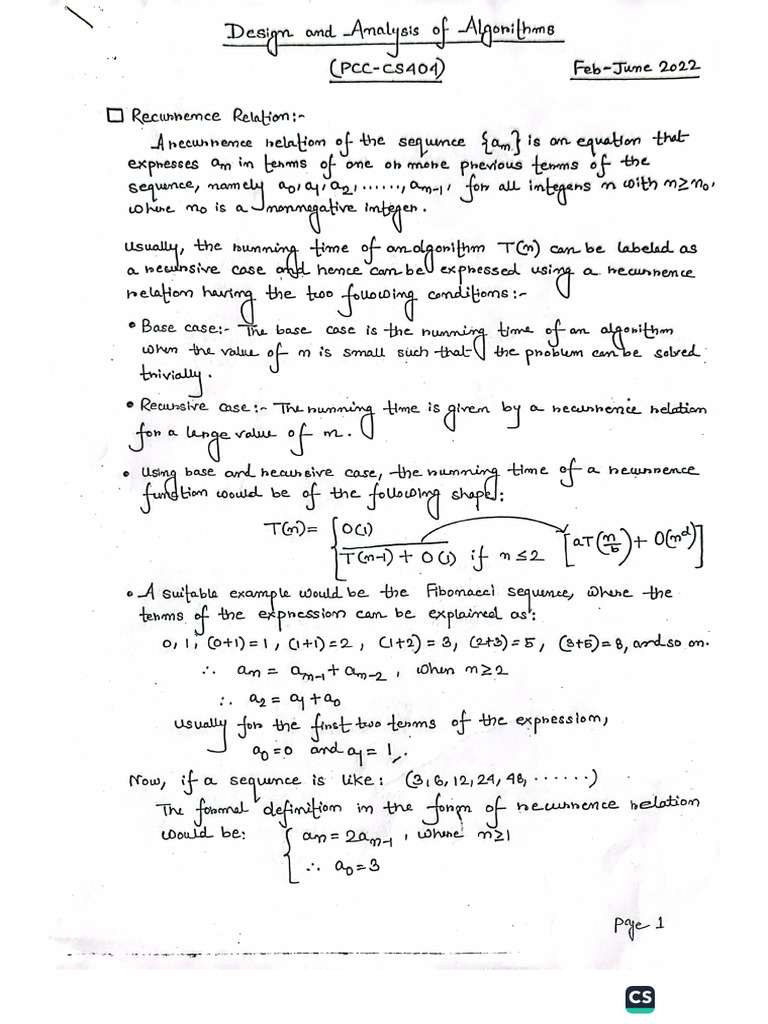 Design and Analysis of Algorithms
(PCC-CS404)
Feb-June 2022
□ Recurrence Relation:-
A recurrence relation of the sequence {an} is an equation that
expresses an in terms of one or more previous terms of the
sequence, namely a0, a1, a2, ......, an-1, for all integers n with n≥n0,
where n0 is a nonnegative integer.
Usually, the running time of an algorithm T(n) can be labeled as
a recursive case and hence can be expressed using a recurrence
relation having the two following conditions:-
• Base case:- The base case is the running time of an algorithm
when the value of n is small such that the problem can be solved
trivially.
• Recursive case:- The running time is given by a recurrence relation
for a large value of n.
• Using base and recursive case, the running time of a recurrence
function would be of the following shape:
T(n) = { O(1)
T(n-1) + O(1) if n ≤ 2 [aT(n/b) + O(n^d)]
• A suitable example would be the Fibonacci sequence, where the
terms of the expression can be explained as:
0, 1, (0+1)=1, (1+1)=2, (1+2)=3, (2+3)=5, (3+5)=8, and so on.
∴ an = an-1 + an-2, when n≥2
∴ a2 = a1 + a0
Usually for the first two terms of the expression,
a0=0 and a1=1.
Now, if a sequence is like: (3, 6, 12, 24, 48, ......)
The formal definition in the form of recurrence relation
would be: { an = 2an-1, where n≥1
∴ a0=3
Page 1
CS